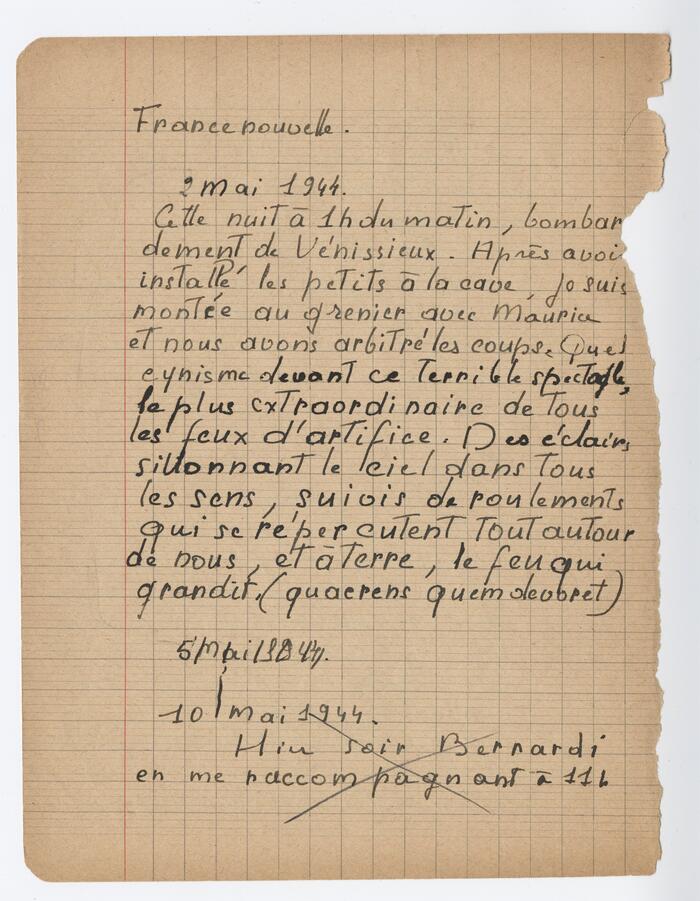 France nouvelle.
2 mai 1944.
Cette nuit à 1h du matin, bombar
dement de Vénissieux. Après avoi
installé les petits à la cave, je suis
montée au grenier avec Maurice
et nous avons arbitré les coups. Quel
cynisme devant ce terrible spectacle,
le plus extraordinaire de tous
les feux d'artifice. Des éclairs
sillonnant le ciel dans tous
les sens, suivis de roulements
qui se répercutent tout autour
de nous, et à terre, le feu qui
grandit, (quaerens quem devoret)
5 mai 1944.
10 mai 1944.
Hier soir Bernardi
en me raccompagnant à 11h